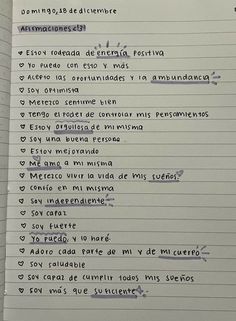 Domingo, 18 de diciembre
Afirmaciones <3
♡ Estoy rodeada de energía positiva
♡ Yo puedo con esto y más
♡ Acepto las oportunidades y la ambundancia
♡ Soy optimista
♡ Merezco sentirme bien
♡ Tengo el poder de controlar mis pensamientos
♡ Estoy orgullosa de mi misma
♡ Soy una buena persona
♡ Estoy mejorando
♡ Me amo a mi misma
♡ Merezco vivir la vida de mis sueños
♡ Confío en mi misma
♡ Soy independiente
♡ Soy capaz
♡ Soy fuerte
♡ Yo puedo, y lo haré
♡ Adoro cada parte de mi y de mi cuerpo
♡ Soy saludable
♡ Soy capaz de cumplir todos mis sueños
♡ Soy más que suficiente